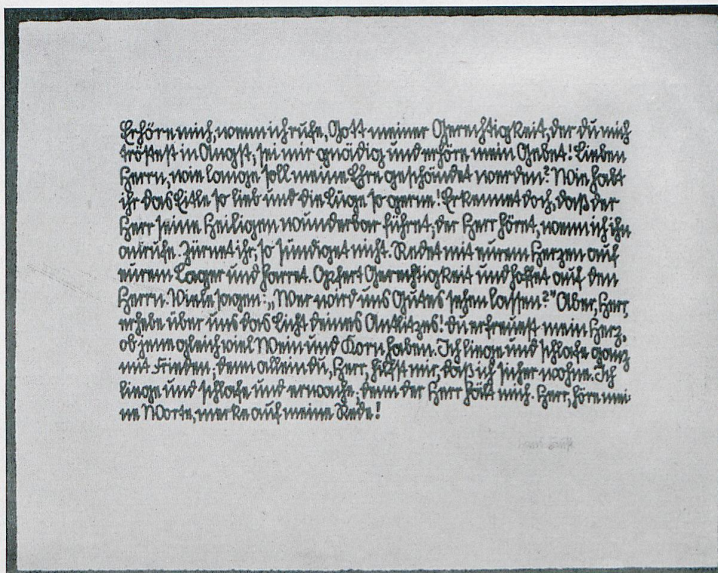 Erhöre mich, wenn ich rufe, Gott meiner Gerechtigkeit, der du mich
tröstest in Angst; sei mir gnädig und erhöre mein Gebet! Lieben
Herrn, wie lange soll meine Ehre geschändet werden? Wie habt
ihr das Eitle so lieb und die Lüge so gerne! Erkennet doch, daß der
Herr seine Heiligen wunderbar führet; der Herr höret, wenn ich ihn
anrufe. Zürnet ihr, so sündiget nicht. Redet mit eurem Herzen auf
eurem Lager und harret. Opfert Gerechtigkeit und hoffet auf den
Herrn. Viele sagen: „Wer wird uns Gutes sehen lassen?" Aber, Herr,
erhebe über uns das Licht deines Antlitzes! du erfreuest mein Herz,
ob jene gleich viel Wein und Korn haben. Ich liege und schlafe ganz
mit Frieden; denn allein du, Herr, hilfst mir, daß ich sicher wohne. Ich
liege und schlafe und erwache; denn der Herr hält mich. Herr, höre mei-
ne Worte, merke auf meine Rede!